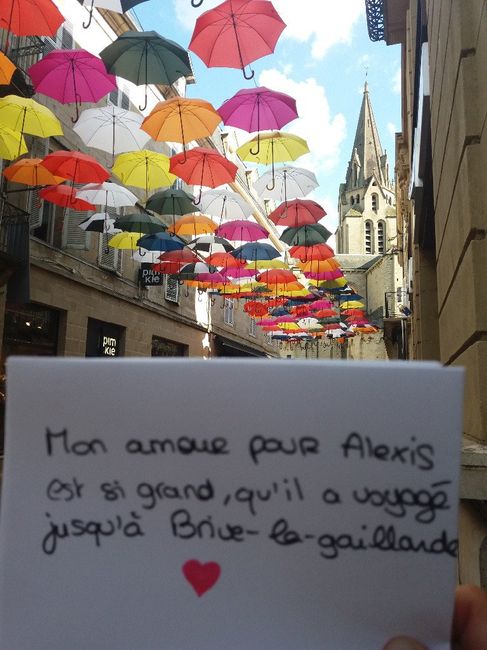 pim
kie
pim
kie
Mon amour pour Alexis
est si grand, qu'il a voyagé
jusqu'à Brive-la-gaillarde